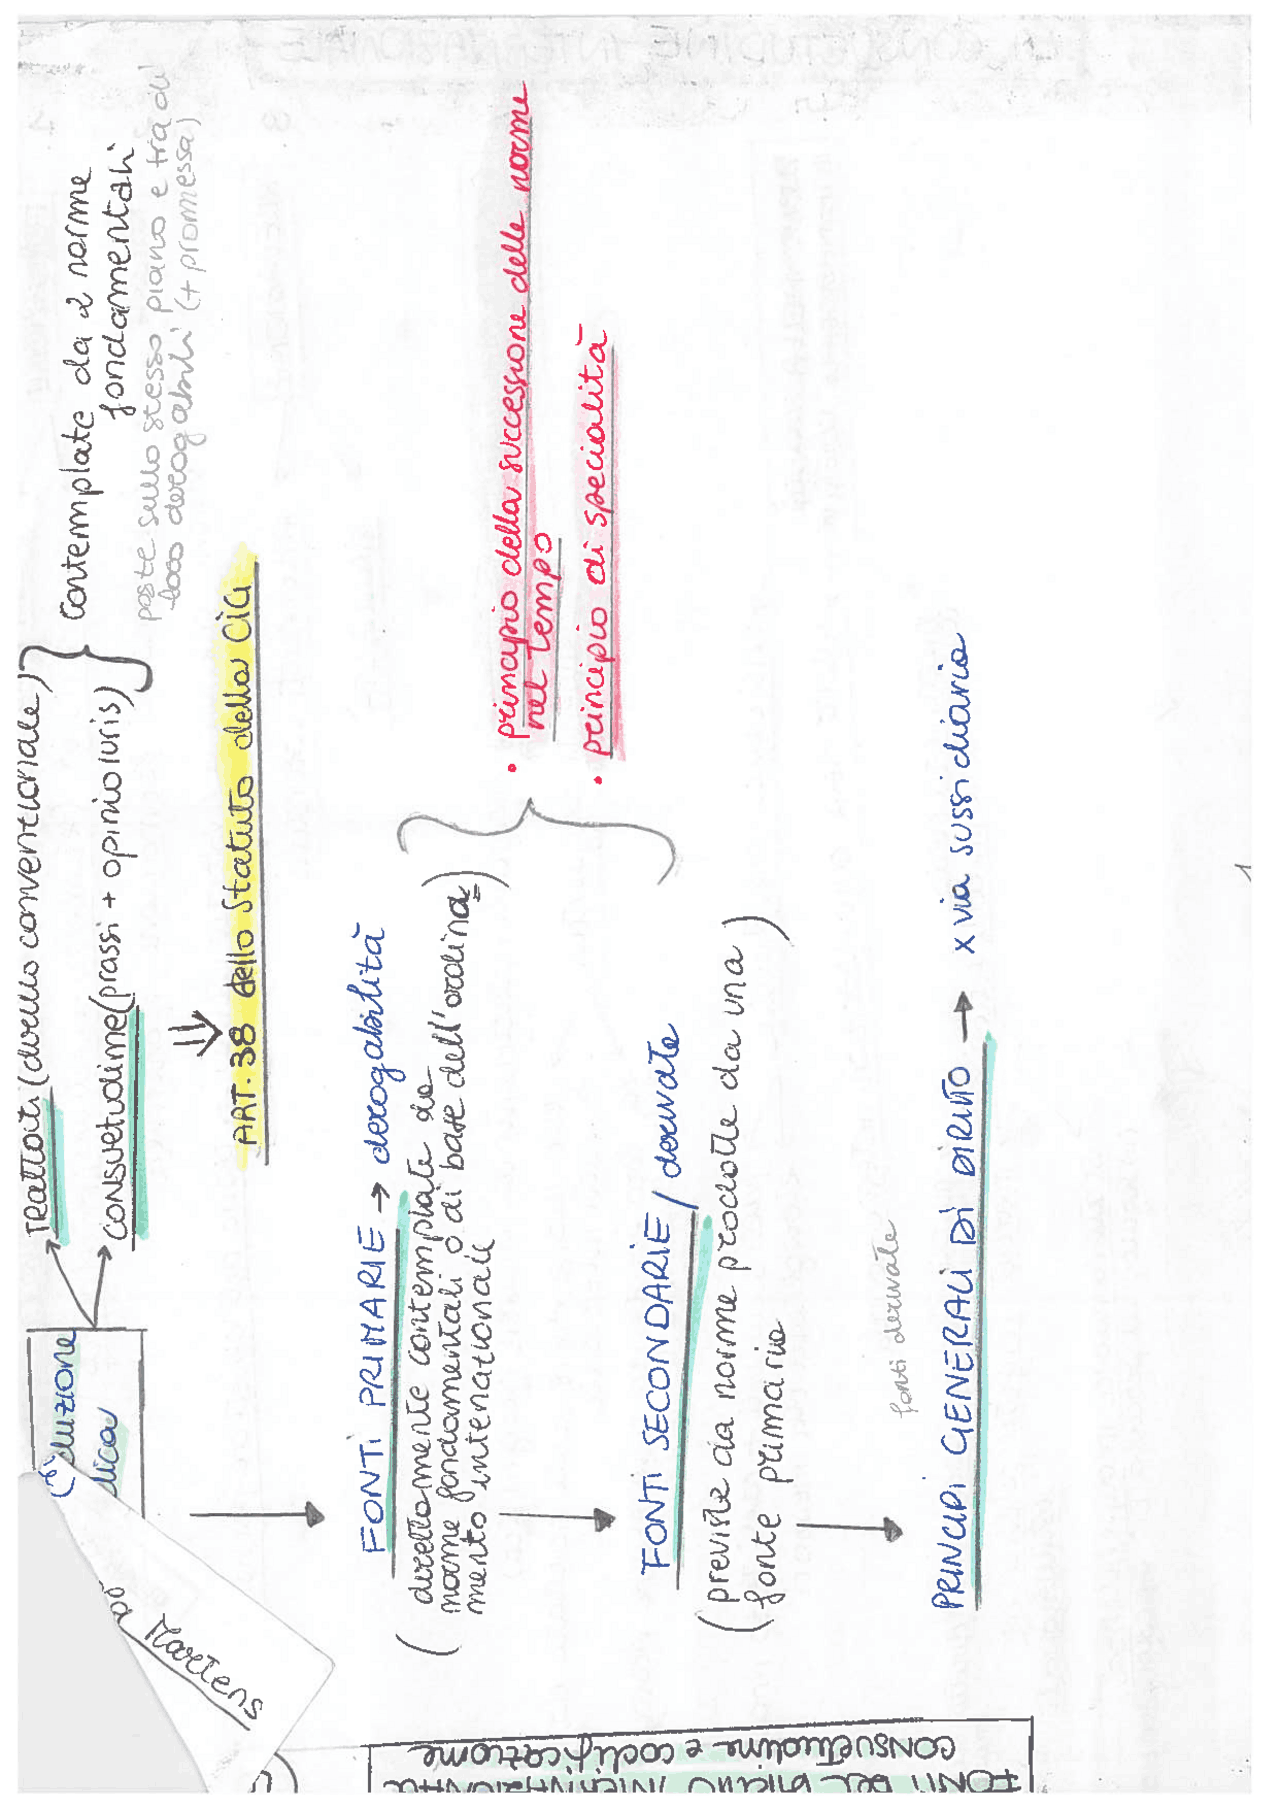 TRATTATI (diritto convenzionale)
CONSUETUDINE (prassi + opinio iuris)
contemplate da 2 norme
fondamentali
poste sullo stesso piano e tra di
loro derogabili (+ promessa)
duzione
dica
ART. 38 dello Statuto della CIG
FONTI PRIMARIE → derogabilità
(direttamente contemplate da
norme fondamentali o di base dell'ordina
mento internazionale)
• principio della successione delle norme
nel tempo
• principio di specialità
FONTI SECONDARIE / derivate
(previste da norme prodotte da una
fonte primaria)
fonti derivate
PRINCIPI GENERALI DI DIRITTO → x via sussidiaria
Martens
FONTI DEL DIRITTO INTERNAZIONALE
consuetudine e codificazione
1